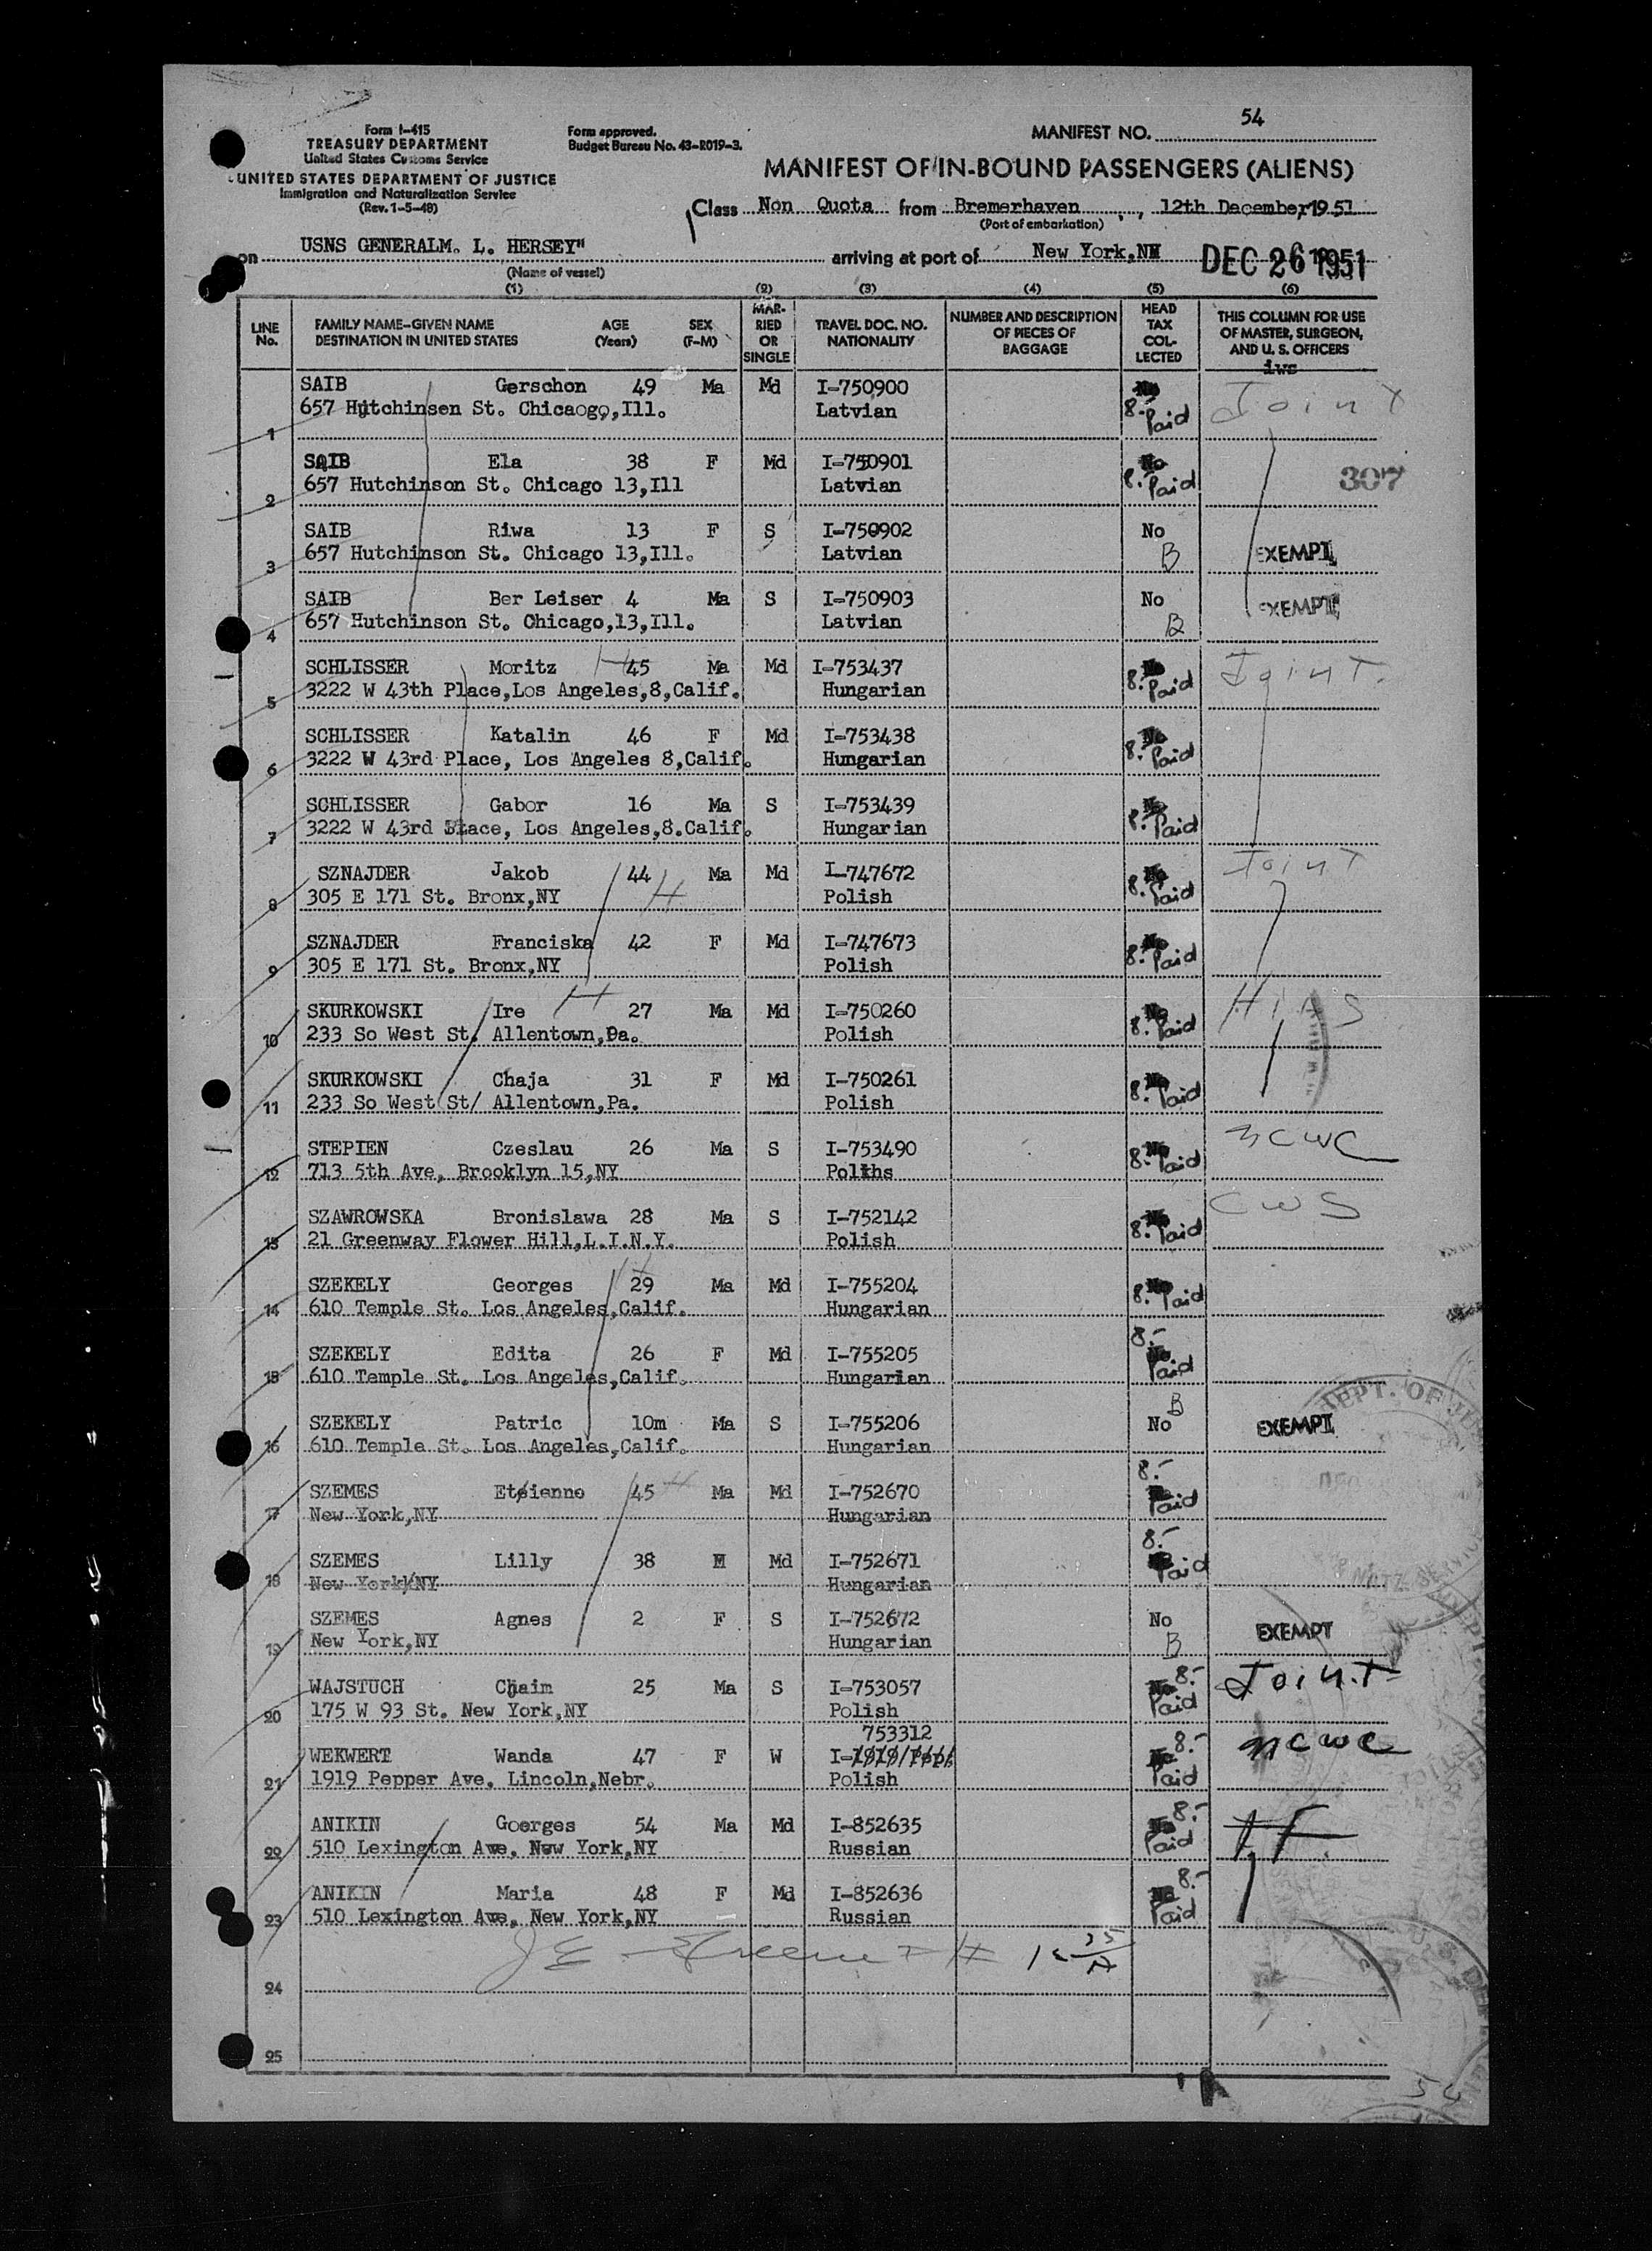 Form I-415
TREASURY DEPARTMENT
United States Customs Service
UNITED STATES DEPARTMENT OF JUSTICE
Immigration and Naturalization Service
(Rev. 1-5-48)
Form approved.
Budget Bureau No. 43-R019-3.
MANIFEST NO. 54
MANIFEST OF IN-BOUND PASSENGERS (ALIENS)
Class Non Quota from Bremerhaven, 12th December, 1951
(Port of embarkation)
on USNS GENERALM. L. HERSEY" arriving at port of New York, DEC 26 1951
(Name of vessel)
(1) (2) (3) (4) (5) (6)
LINE No. FAMILY NAME-GIVEN NAME DESTINATION IN UNITED STATES AGE (Years) SEX (F-M) MARRIED OR SINGLE TRAVEL DOC. NO. NATIONALITY NUMBER AND DESCRIPTION OF PIECES OF BAGGAGE HEAD TAX COLLECTED THIS COLUMN FOR USE OF MASTER, SURGEON, AND U. S. OFFICERS
iws
SAIB Gerschon 49 Ma Md I-750900 No 8.- Paid Joint
1 657 Hutchinsen St. Chicaogo,Ill. Latvian
SAIB Ela 38 F Md I-750901 No 8.- Paid 307
2 657 Hutchinson St. Chicago 13,Ill Latvian
SAIB Riwa 13 F S I-750902 No B EXEMPT
3 657 Hutchinson St. Chicago 13,Ill. Latvian
SAIB Ber Leiser 4 Ma S I-750903 No B EXEMPT
4 657 Hutchinson St. Chicago,13,Ill. Latvian
SCHLISSER Moritz H 45 Ma Md I-753437 No 8.- Paid Joint.
5 3222 W 43th Place,Los Angeles,8,Calif. Hungarian
SCHLISSER Katalin 46 F Md I-753438 No 8.- Paid
6 3222 W 43rd Place, Los Angeles 8,Calif. Hungarian
SCHLISSER Gabor 16 Ma S I-753439 No 8.- Paid
7 3222 W 43rd Place, Los Angeles,8.Calif. Hungarian
SZNAJDER Jakob 44 H Ma Md I-747672 No 8.- Paid Joint
8 305 E 171 St. Bronx,NY Polish
SZNAJDER Franciska 42 F Md I-747673 No 8.- Paid
9 305 E 171 St. Bronx,NY Polish
SKURKOWSKI Ire H 27 Ma Md I-750260 No 8.- Paid HIAS
10 233 So West St. Allentown,Pa. Polish
SKURKOWSKI Chaja 31 F Md I-750261 No 8.- Paid
11 233 So West St/ Allentown,Pa. Polish
STEPIEN Czeslau 26 Ma S I-753490 No 8.- Paid NCWC
12 713 5th Ave, Brooklyn 15,NY Polihs
SZAWROWSKA Bronislawa 28 Ma S I-752142 No 8.- Paid CWS
13 21 Greenway Flower Hill,L.I.N.Y. Polish
SZEKELY Georges H 29 Ma Md I-755204 No 8.- Paid
14 610 Temple St. Los Angeles,Calif. Hungarian
SZEKELY Edita 26 F Md I-755205 8.- No Paid
15 610 Temple St. Los Angeles,Calif. Hungarian
SZEKELY Patric 10m Ma S I-755206 No B EXEMPT
16 610 Temple St. Los Angeles,Calif. Hungarian
SZEMES Eteienne 45 H Ma Md I-752670 8.- No Paid
17 New York,NY Hungarian
SZEMES Lilly 38 Md I-752671 8.- Paid
18 New York/NY Hungarian
SZEMES Agnes 2 F S I-752672 No B EXEMPT
19 New York,NY Hungarian
WAJSTUCH Chaim 25 Ma S I-753057 No 8.- Paid Joint
20 175 W 93 St. New York,NY Polish
753312
WEKWERT Wanda 47 F W I- No 8.- Paid NCWC
21 1919 Pepper Ave. Lincoln,Nebr. Polish
ANIKIN Goerges 54 Ma Md I-852635 No 8.- Paid T.F.
22 510 Lexington Ave, New York,NY Russian
ANIKIN Maria 48 F Md I-852636 No 8.- Paid
23 510 Lexington Ave, New York,NY Russian
24
25
54